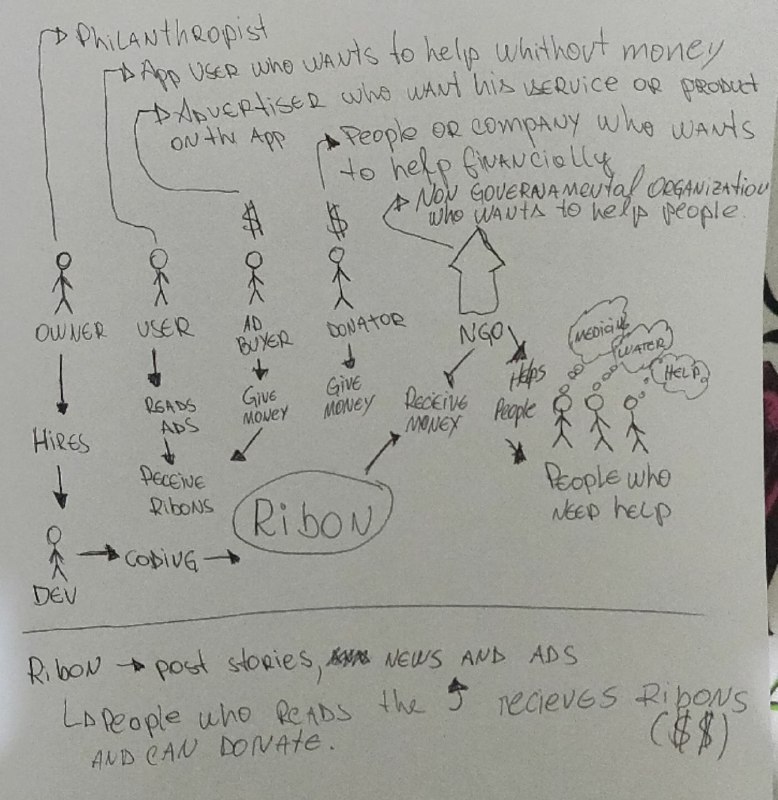 Philanthropist
App user who wants to help whithout money
Advertiser who want his service or product
on the App
People or company who wants
to help financially
Non Governamental Organization
who wants to help people.
$
$
Owner
User
Ad
Buyer
Donator
NGO
Medicine
Water
Help
Hires
Reads
Ads
Give
Money
Give
Money
Receive
Money
Helps
People
Receive
Ribons
Ribon
People who
need help
Dev
Coding
Ribon → post stories, news and ads
↳ People who reads the ⤴ recieves Ribons
($$)
and can donate.